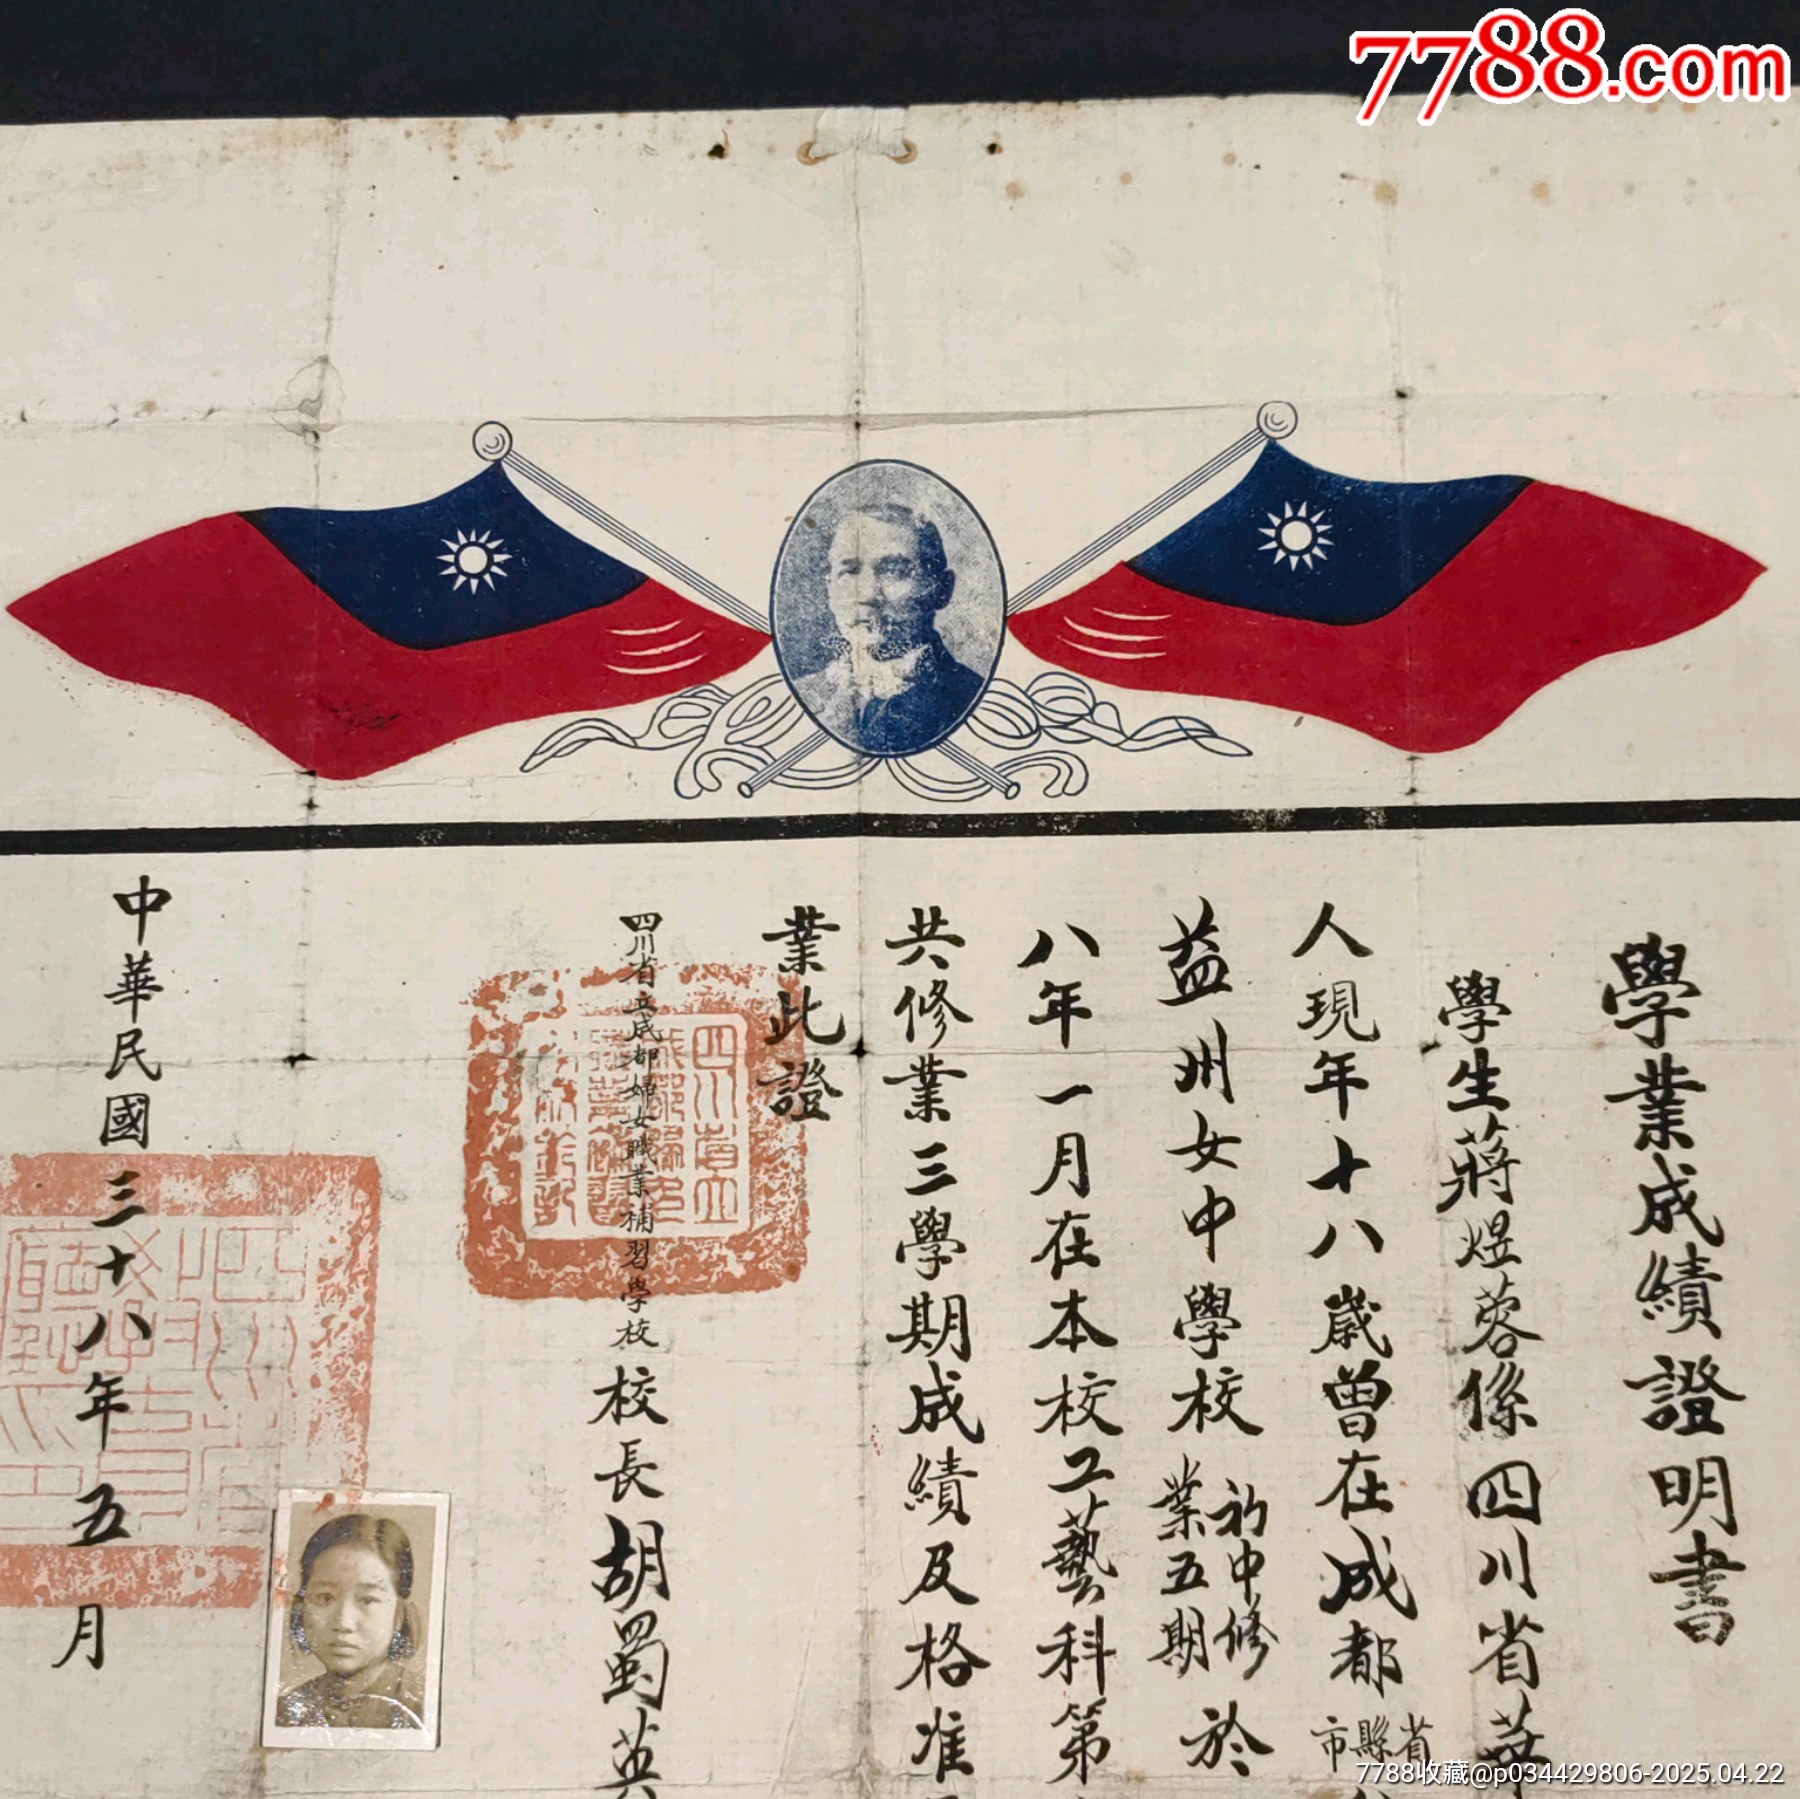 7788.com
學業成績證明書
學生蔣煜蓉係四川省華
人現年十八歲曾在成都省縣市
益州女中學校初中修業五期於
八年一月在本校工藝科第
共修業三學期成績及格准
業此證
四川省立成都婦女職業補習學校校長胡蜀英
中華民國三十八年五月
7788收藏@p034429806-2025.04.22